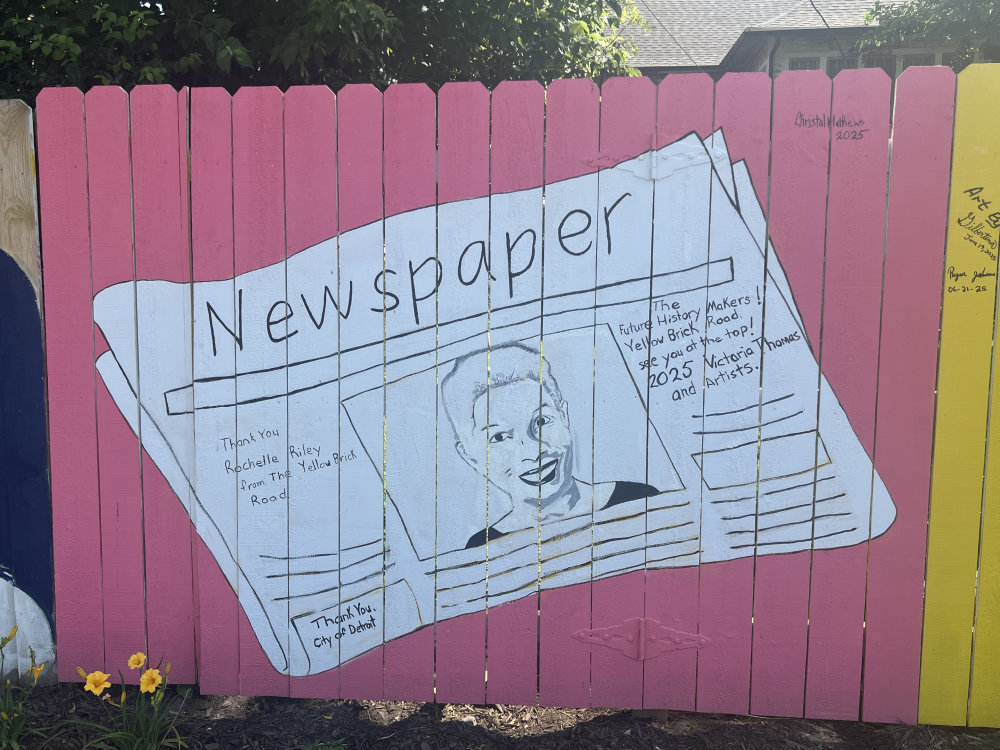 Christal Mathews
2025
Art By
June 19, 2025
06-21-25
Newspaper
The
Future History Makers!
Yellow Brick Road.
see you at the top!
2025 Victoria Thomas
and Artists.
Thank You
Rochelle Riley
from The Yellow Brick
Road
Thank You,
City of Detroit